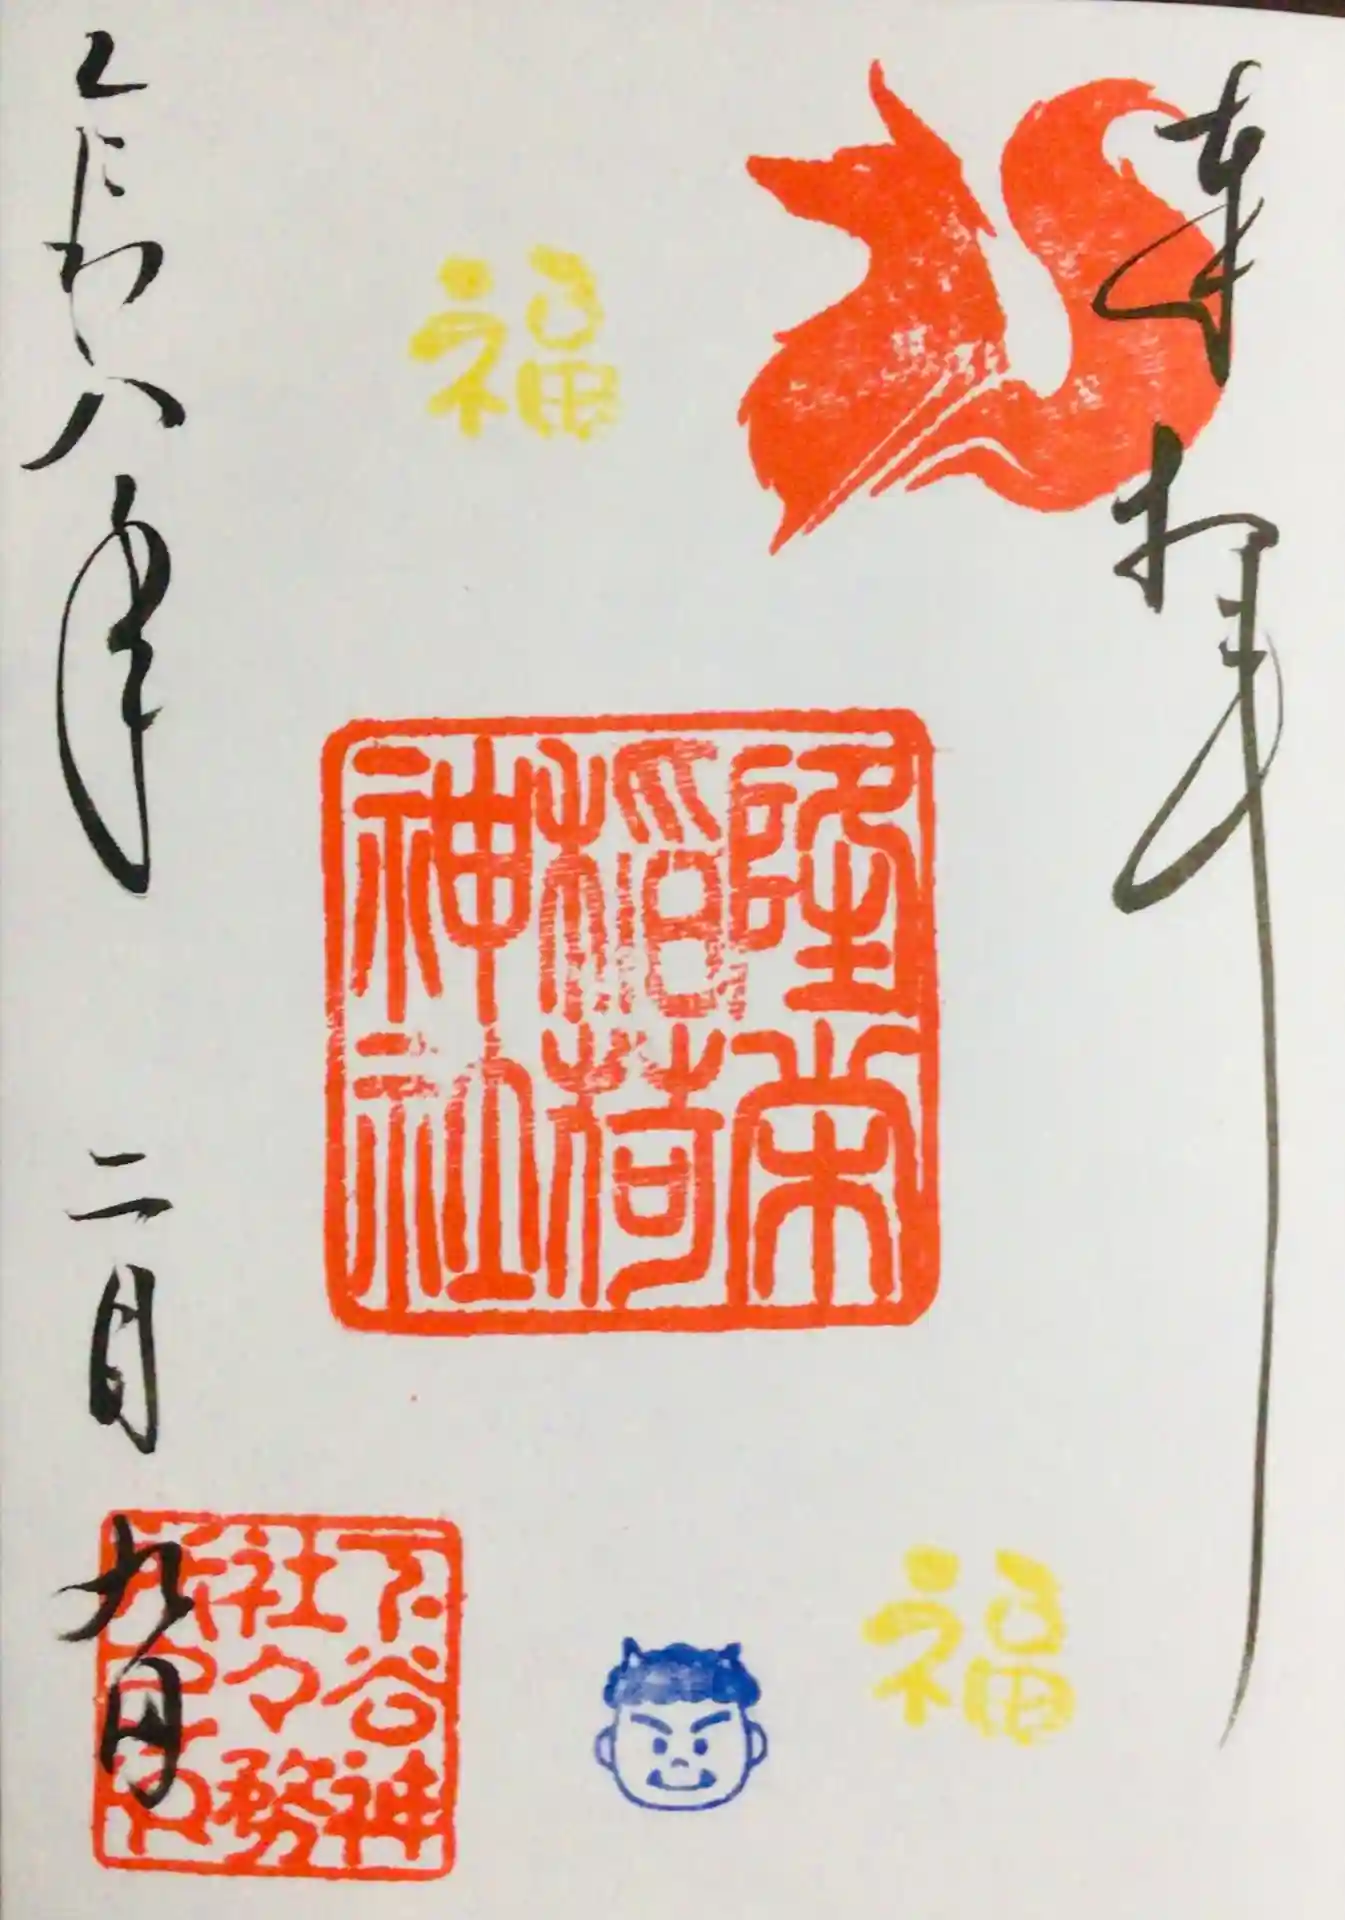 奉拝
福
隆栄
稲荷
神社
福
令和八年 二月 九日
下谷神
社々務
所之印